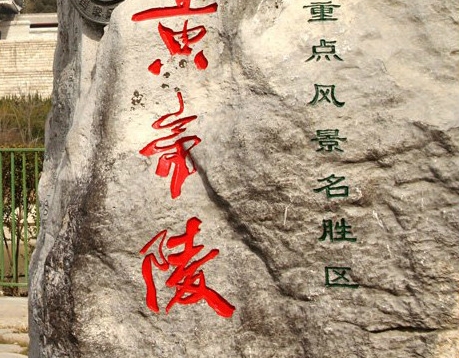 重点风景名胜区
黄帝陵